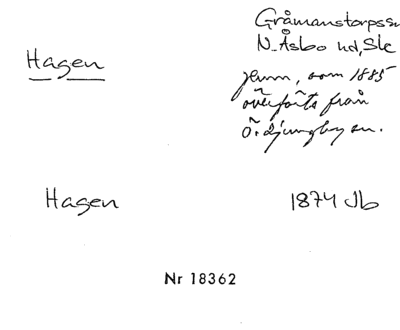 Hagen
Gråmanstorps sn
N. Åsbo hd, Sk
hemm, som 1885
överförts från
Ö. Ljungby sn.
Hagen
1874 Jb
Nr 18362